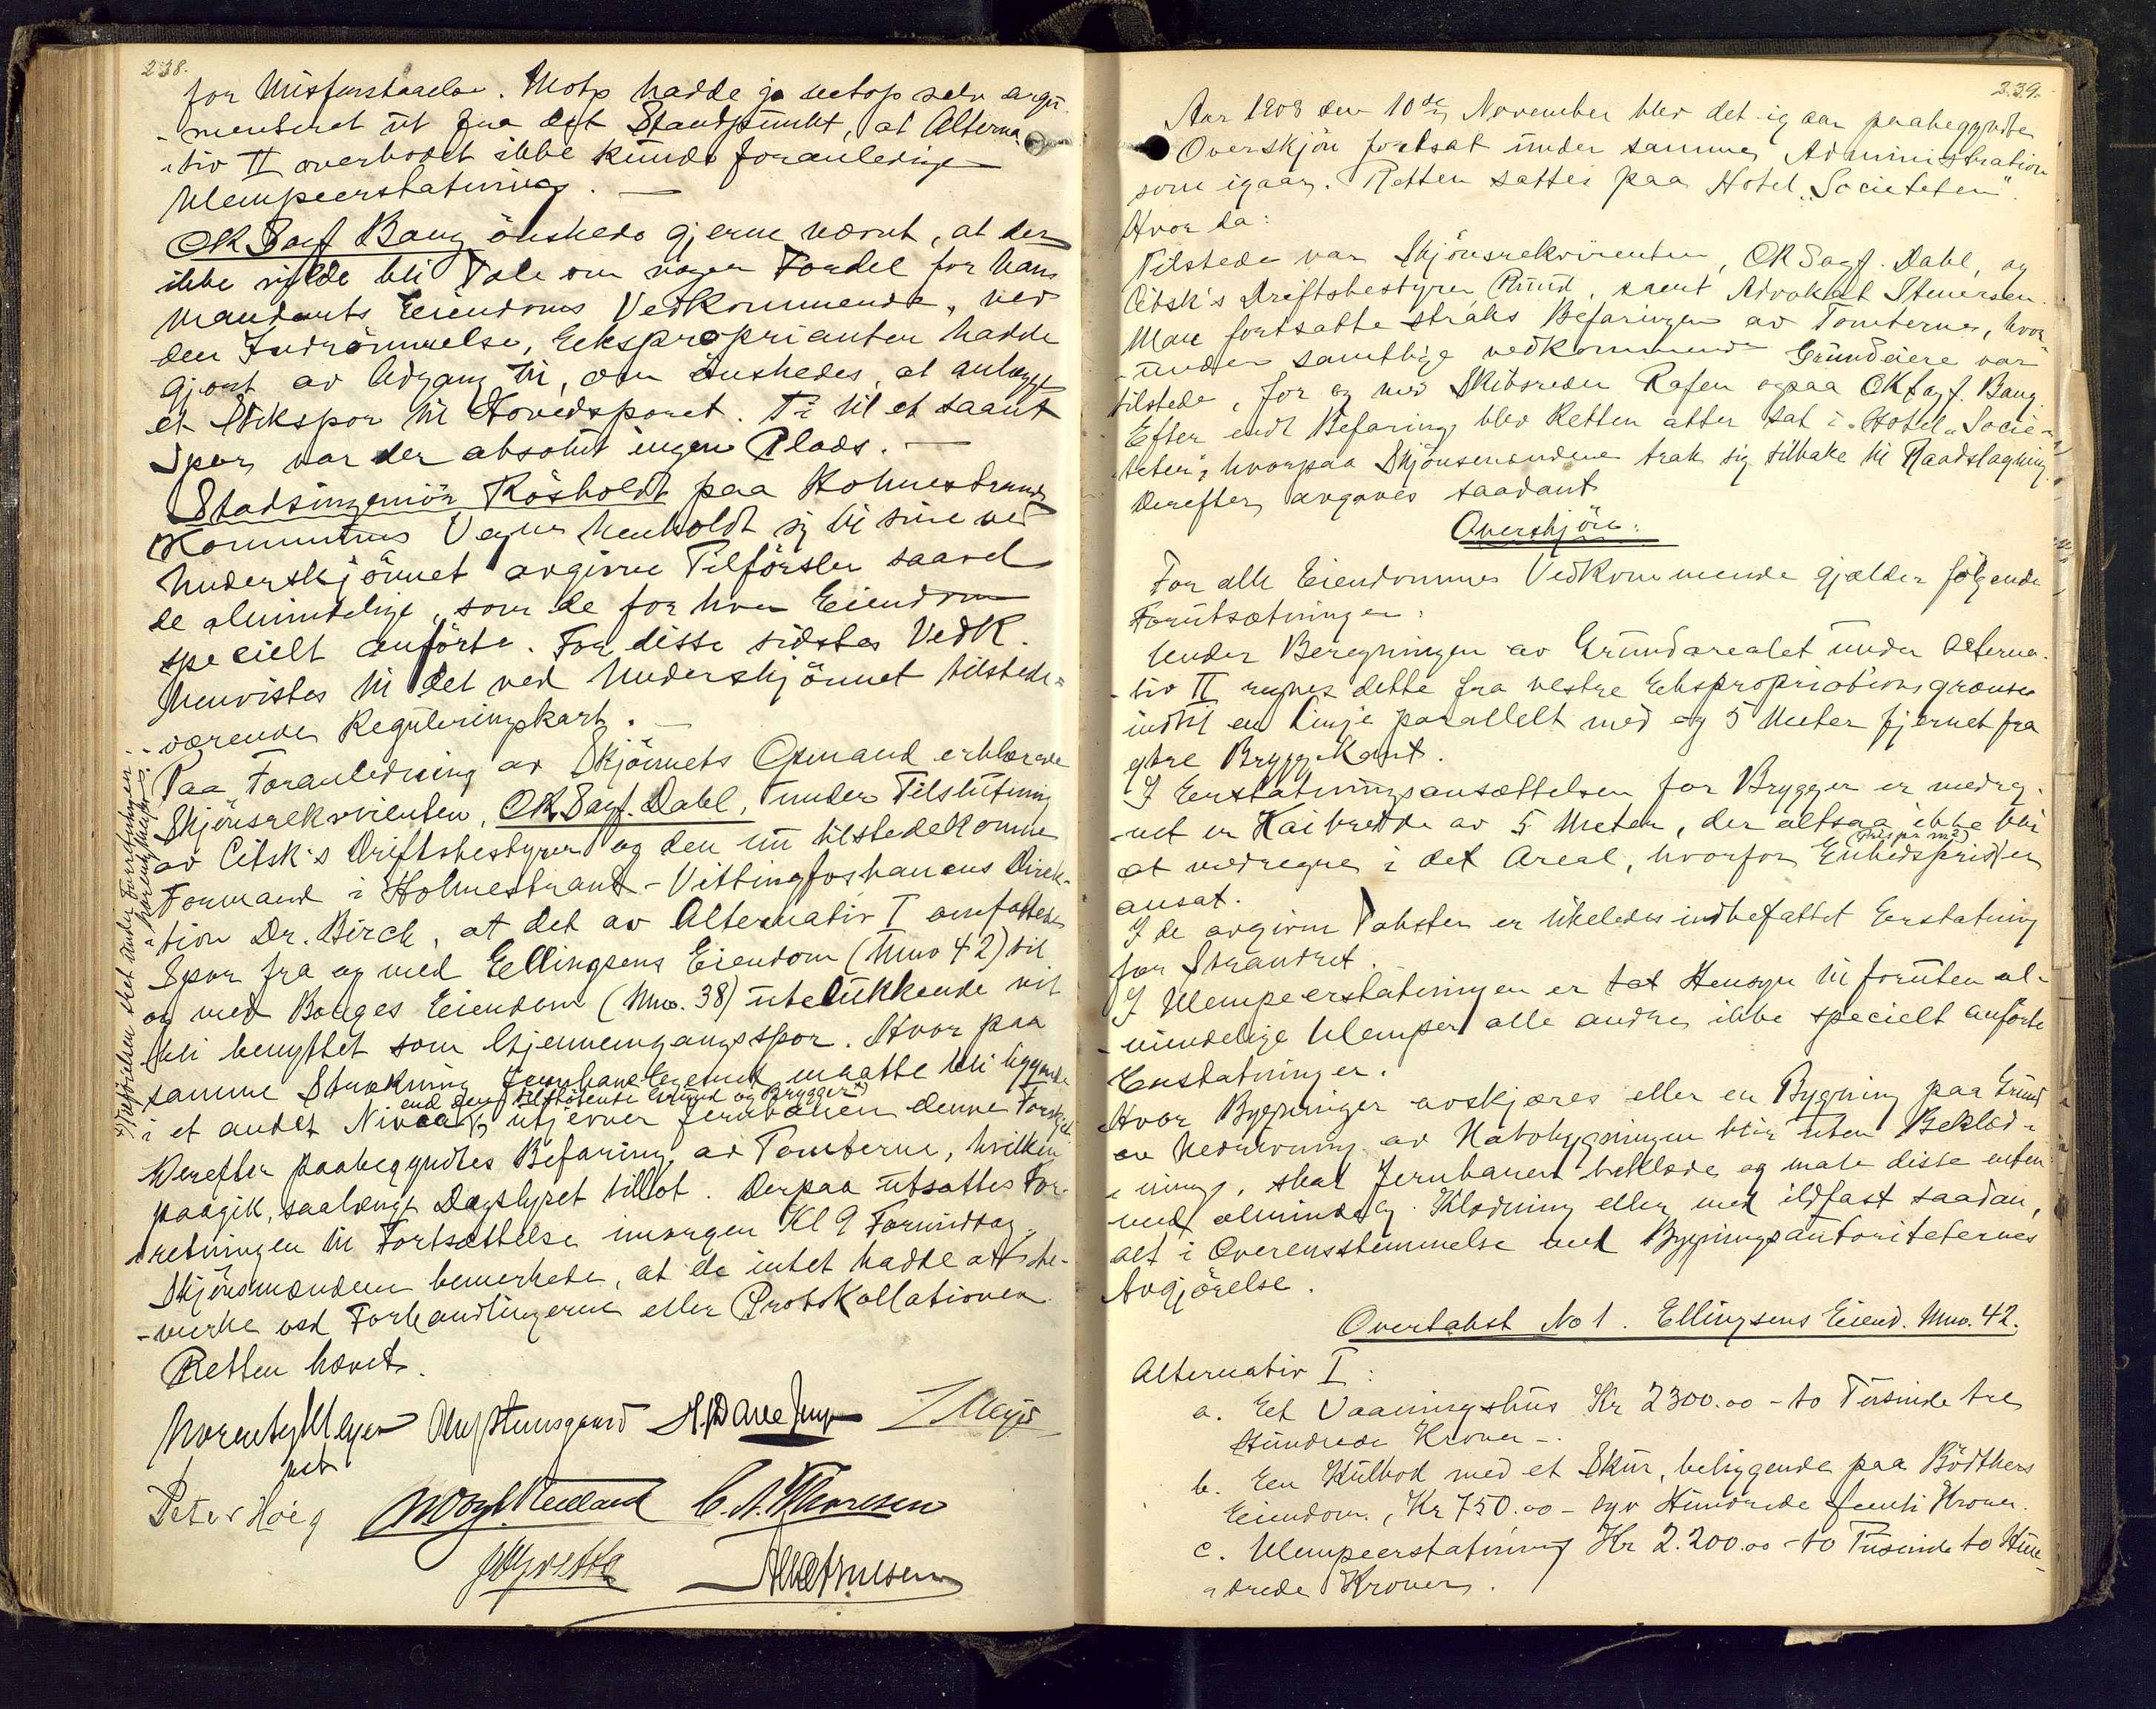 238.
for Misforstaaelse. Motp hadde jo netop selv argu-
-menteret ut fra det Standpunkt, at Alterna-
-tiv II overhodet ikke kunde foranledige
Ulempeerstatning. —
OR Sagf Bang önskede gjerne nævnt, at der
ikke vilde bli Tale om nogen Fordel for hans
Mandants Eiendoms Vedkommende, ved
den Indrömmelse, Ekspropianten hadde
gjort av Adgang til, om önskedes, at anlægge
et Stikspor til Hovedsporet. Ti til et saant
Spor var der absolut ingen Plads. —
Stadsingeniör Rösholdt paa Holmestrands
Kommunes Vegne henholdt sig til sine ved
Underskjönnet avgivne Tilförsler saavel
de almindelige, som de for hver Eiendom
specielt anförte. For disse sidstes Vedk.
henvistes til det ved Underskjönnet tilstede-
-værende Reguleringskart. —
Paa Foranledning av Skjönnets Opmand erklærede
Skjönsrekvirenten, OR Sagf. Dahl, under Tilslutning
av Citsk's Driftsbestyrer og den nu tilstedekomne
Formand i Holmestrand-Vittingfosbanens Direk-
tion Dr. Birch, at det av Alternativ I omfattede
Spor fra og med Ellingsens Eiendom (Mno 42) til
og med Bouges Eiendom (Mno. 38) utelukkende vil
bli benyttet som Gjennemgangsspor. Hvor paa
samme Strækning Jernbanelegemet maatte bli liggende
end den tilstötende Grund og Brygger x)
i et andet Niveau utjevner Jernbanen denne Forskjel.
Derefter paabegyndtes Befaring av Tomterne, hvilken
paagik, saalængt Dagslyset tillot. Derpaa utsattes For-
retningen til Fortsættelse imorgen Kl 9 Formiddag.
Skjönsmændene bemerkede, at de intet hadde at be-
-merke ved Forhandlingerne eller Protokollationen.
Retten hævet.
Peter Höeg
C. A. Thoresen
339.
Aar 1908 den 10de November blev det igaar paabegyndte
Overskjön fortsat under samme Administration
som igaar. Retten sattes paa Hotel „Societeten".
Hvor da:
Tilstede var Skjönsrekvirenten, OR Sagf. Dahl, og
Citsk's Driftsbestyrer Ruud, samt Advokat Stenersen.
Man fortsatte straks Befaringen av Tomterne, hvor-
-under samtlige vedkommende Grundeiere var
tilstede, for og med Skibsreder Rafen ogsaa OR Sagf. Bang.
Efter endt Befaring blev Retten atter sat i Hotel „Socie-
teten", hvorpaa Skjönsmændene trak sig tilbake til Raadslagning.
Derefter avgaves saadant
Overskjön:
For alle Eiendommes Vedkommende gjælder följende
Forutsætninger:
Under Beregningen av Grundarealet under Alterna-
-tiv II regnes dette fra vestre Ekspropriationsgrænse
indtil en Linje parallelt med og 5 Meter fjernet fra
ytre Bryggekant.
I Erstatningsansættelsen for Brygger er medreg-
-net en Kaibredde av 5 Meter, der altsaa ikke blir
(Pris pr m2)
at medregne i det Areal, hvorfor Enhedspris er
ansat.
I de avgivne Takster er likeledes indbefattet Erstatning
for Strandret.
I Ulempeerstatningen er tat Hensyn til foruten al-
-mindelige Ulemper alle andre ikke specielt anförte
Erstatninger.
Hvor Bygninger avskjæres eller en Bygning paa Grund
av Nedrivning av Nabobygningen blir uten Beklæd-
-ning, skal Jernbanen beklæde og male disse enten
med almindelig Klædning eller med ildfast saadan,
alt i Overensstemmelse med Bygningsautoriteternes
Avgjörelse.
Overtakst No 1. Ellingsens Eiend. Mno. 42.
Alternativ I:
a. Et Vaaningshus Kr 2300.00 - to Tusinde tre
Hundrede Kroner -.
b. En Kulbod med et Skur, beliggende paa Bödtkers
Eiendom, Kr 750.00 - syv Hundrede femti Kroner.
c. Ulempeerstatning Kr 2.200.00 - to Tusinde to Hun-
-drede Kroner.